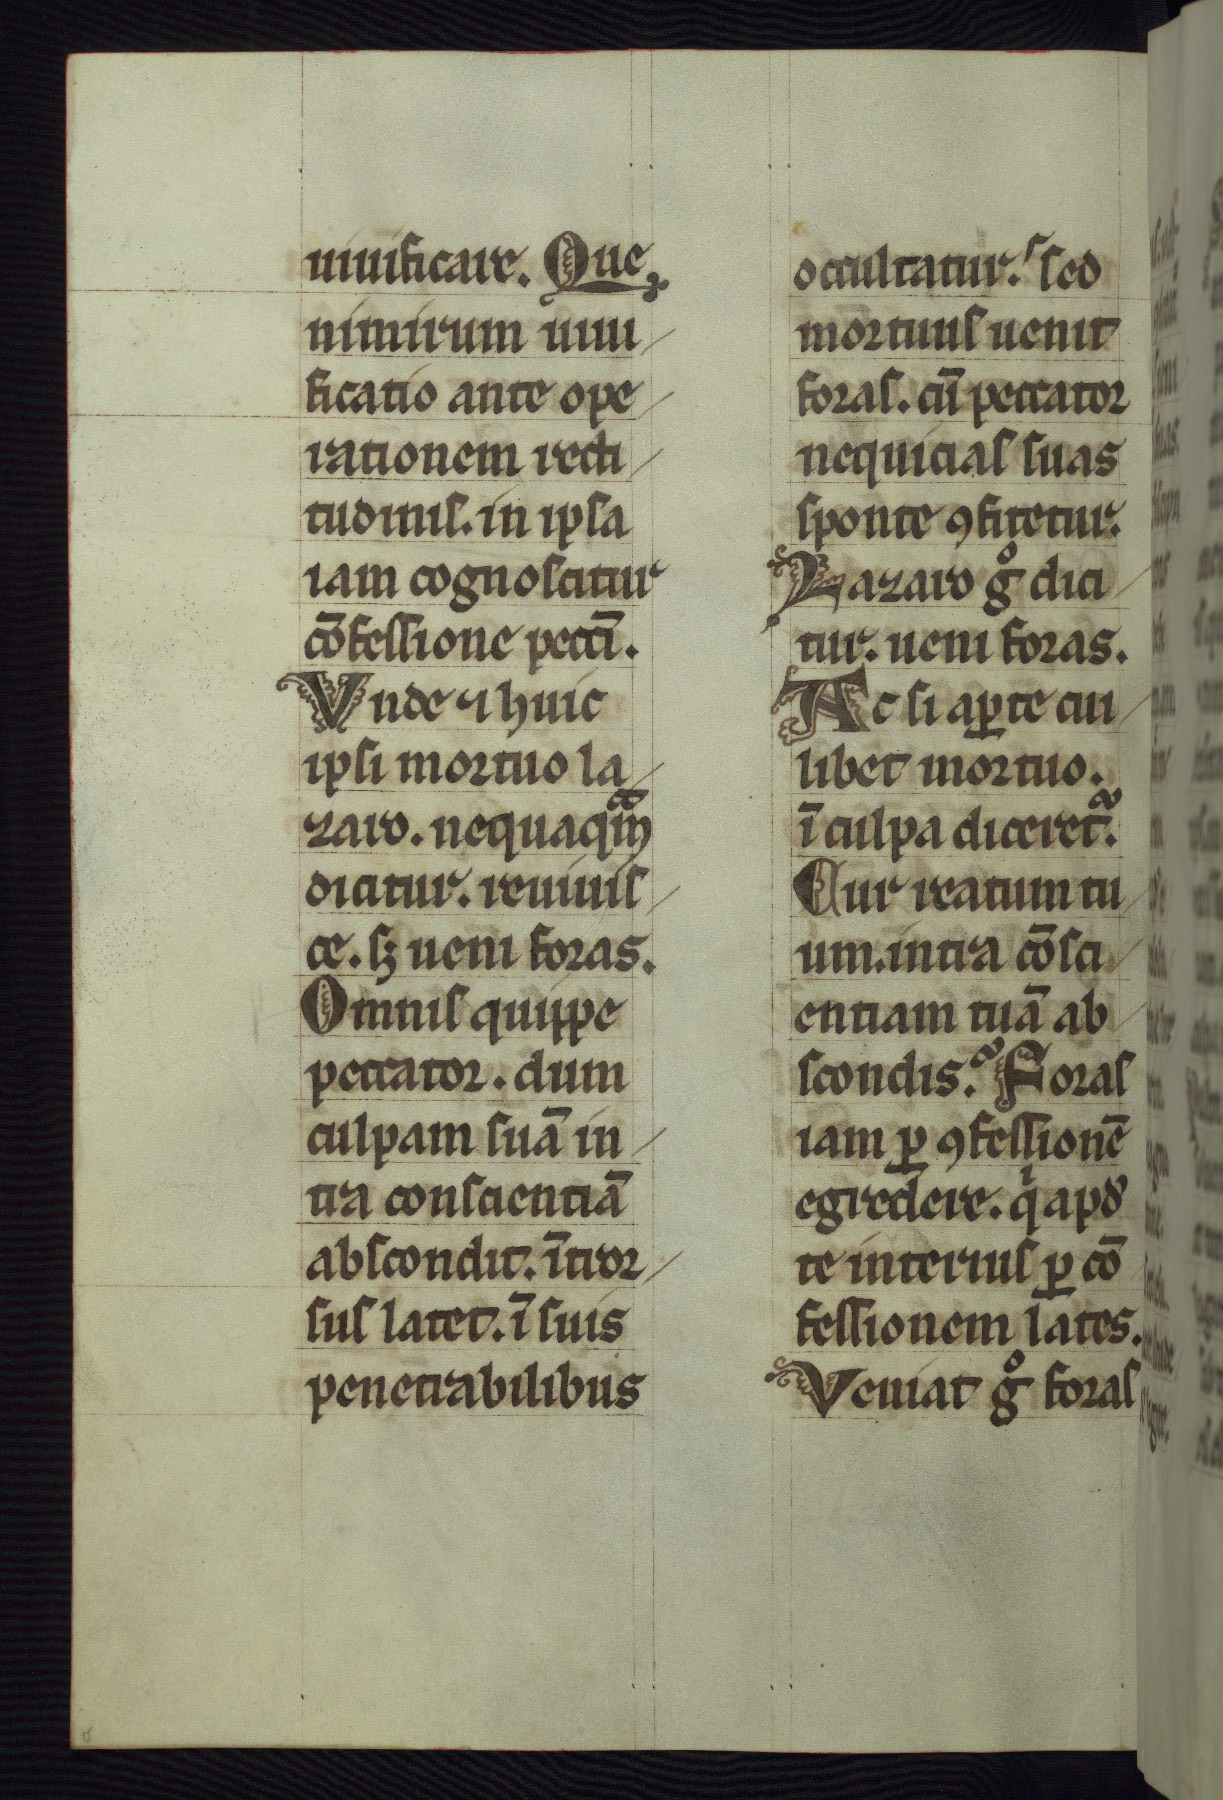 uiuificare. Que
nimirum uiui
ficatio ante ope
rationem recti
tudinis. in ipsa
iam cognoscitur
cōfessione peccī.
Vnde ⁊ huic
ipsi mortuo la
zaro. nequaqm̄
dicitur. reuiuis
ce. sꝫ ueni foras.
Omnis quippe
peccator. dum
culpam suā in
tra conscientiā
abscondit. ītror
sus latet. ī suis
penetrabilibus
occultatur. sed
mortuus uenit
foras. cū peccator
nequicias suas
sponte ꝯfitetur.
Lazaro gͦ dici
tur. ueni foras.
Ac si aꝑte cui
libet mortuo.
ī culpa diceret.
Cur reatum tu
um. intra cōsci
entiam tuā ab
scondis. Foras
iam ꝑ ꝯfessionē
egredere. qͥ apđ
te interius ꝑ cō
fessionem lates.
Veniat gͦ foras